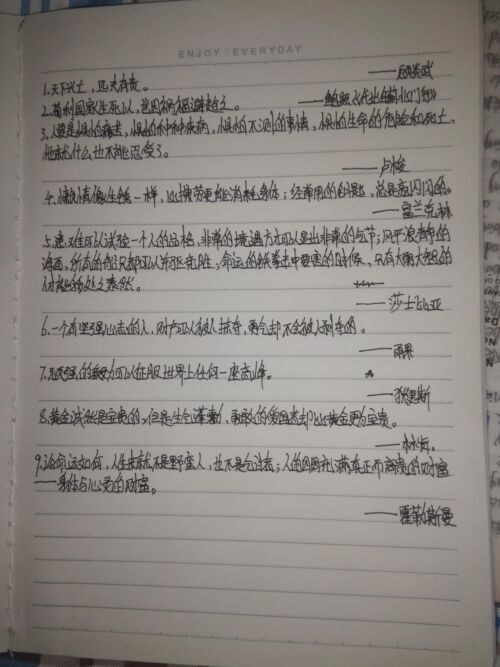 ENJOY EVERYDAY
1.天下兴亡，匹夫有责。
——顾炎武
2.苟利国家生死以，岂因祸福避趋之。
3.人要是惧怕痛苦，惧怕种种疾病，惧怕不测的事情，惧怕生命的危险和死亡，
他就什么也不能忍受了。
——卢梭
4.懒惰像生锈一样，比操劳更能消耗身体；经常用的钥匙，总是亮闪闪的。
——富兰克林
5.患难可以试验一个人的品格，非常的境遇方才可以显出非常的气节；风平浪静的
海面，所有的船只都可以并驱竞胜；命运的铁拳击中要害的时候，只有大勇大智的
人才能够处之泰然。
——莎士比亚
6.一个有坚强心志的人，财产可以被人掠夺，勇气却不会被人剥夺的。
——雨果
7.顽强的毅力可以征服世界上任何一座高峰。
——狄更斯
8.黄金诚然是宝贵的，但是生气蓬勃、勇敢的爱国者却比黄金更为宝贵。
——林肯。
9.论命运如何，人生来就不是野蛮人，也不是乞讨者；人的四周充满真正而高贵的财富
——身体与心灵的财富。
——霍勒斯曼